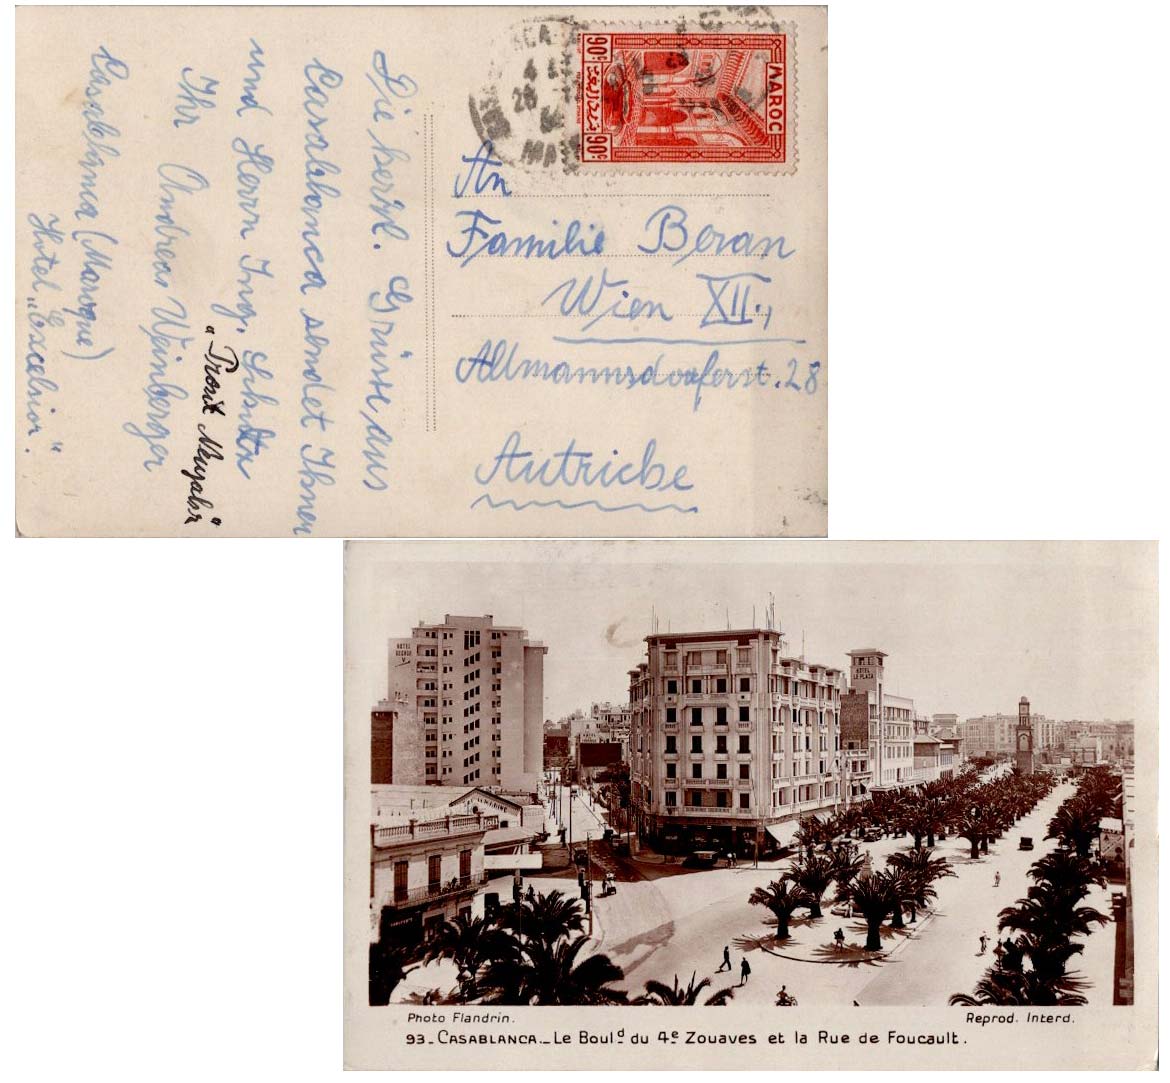 MAROC
90c
90c
An
Familie Beran
Wien XII.,
Altmannsdorferst. 28
Autriche
Die herzl. Grüsse aus
Casablanca sendet Ihnen
und Herrn Ing.
Ihr Andreas Weinberger
„Prosit Neujahr“
Casablanca (Maroque)
Hotel „Excelsior“.
HOTEL
GEORGE
V
HOTEL
LE PLAZA
Photo Flandrin.
Reprod. Interd.
93_CASABLANCA._Le Bould du 4e Zouaves et la Rue de Foucault.